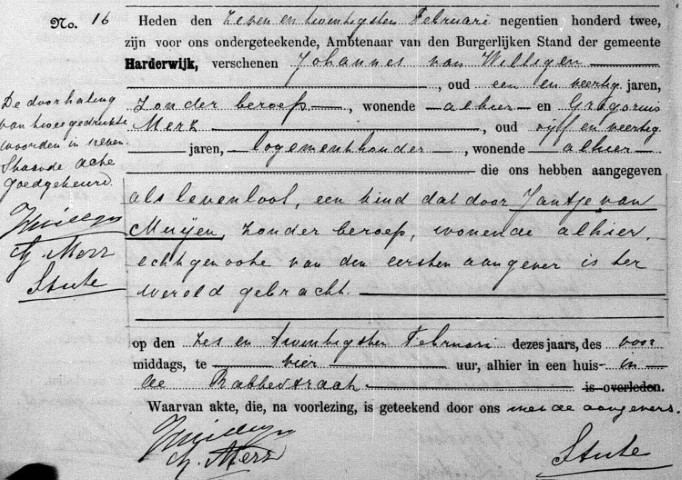 No. 16
Heden den Zeven en twintigsten Februari negentien honderd twee,
zijn voor ons ondergeteekende, Ambtenaar van den Burgerlijken Stand der gemeente
Harderwijk, verschenen Johannes van Willigen
, oud een en veertig jaren,
zonder beroep, wonende alhier en Gregorius
Merz, oud vijf en veertig
jaren, logementhouder, wonende alhier
die ons hebben aangegeven
als levenloos, een kind dat door Jantje van
Muijen, zonder beroep, wonende alhier,
echtgenoote van den eersten aangever is ter
wereld gebracht.
op den Zes en twintigsten Februari dezes jaars, des voor
middags, te vier uur, alhier in een huis in
de Rabbestraat is overleden.
Waarvan akte, die, na voorlezing, is geteekend door ons met de aangevers.
G. Merz
Stute
De doorhaling
van twee gedrukte
woorden in neven
staande acte
goedgekeurd.
G. Merz
Stute